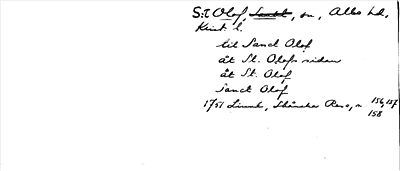 S:t Olof, Sankt, sn, Albo hd,
Krist l.
til Sanct Olof
åt St. Olofs sidan
åt St. Olof
Sanct Olof
1751 Linné, Skånska Resa, s 156, 157
158